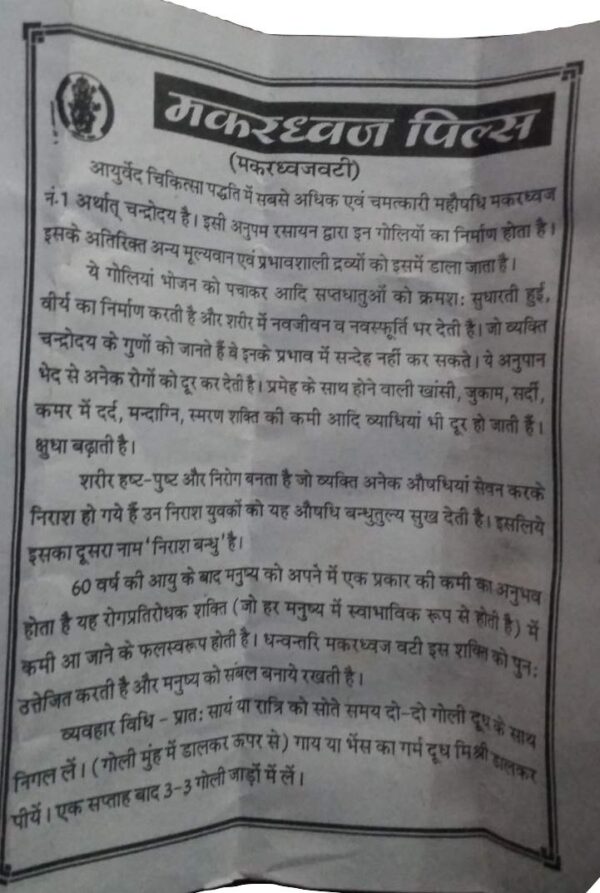 मकरध्वज पिल्स
(मकरध्वजवटी)
आयुर्वेद चिकित्सा पद्धति में सबसे अधिक एवं चमत्कारी महौषधि मकरध्वज
नं.1 अर्थात् चन्द्रोदय है। इसी अनुपम रसायन द्वारा इन गोलियों का निर्माण होता है।
इसके अतिरिक्त अन्य मूल्यवान एवं प्रभावशाली द्रव्यों को इसमें डाला जाता है।
ये गोलियां भोजन को पचाकर आदि सप्तधातुओं को क्रमश: सुधारती हुई,
वीर्य का निर्माण करती है और शरीर में नवजीवन व नवस्फूर्ति भर देती है। जो व्यक्ति
चन्द्रोदय के गुणों को जानते हैं वे इनके प्रभाव में सन्देह नहीं कर सकते। ये अनुपान
भेद से अनेक रोगों को दूर कर देती है। प्रमेह के साथ होने वाली खांसी, जुकाम, सर्दी,
कमर में दर्द, मन्दाग्नि, स्मरण शक्ति की कमी आदि व्याधियां भी दूर हो जाती हैं।
क्षुधा बढ़ाती है।
शरीर हष्ट-पुष्ट और निरोग बनता है जो व्यक्ति अनेक औषधियां सेवन करके
निराश हो गये हैं उन निराश युवकों को यह औषधि बन्धुतुल्य सुख देती है। इसलिये
इसका दूसरा नाम 'निराश बन्धु' है।
60 वर्ष की आयु के बाद मनुष्य को अपने में एक प्रकार की कमी का अनुभव
होता है यह रोगप्रतिरोधक शक्ति (जो हर मनुष्य में स्वाभाविक रूप से होती है) में
कमी आ जाने के फलस्वरूप होती है। धन्वन्तरि मकरध्वज वटी इस शक्ति को पुन:
उत्तेजित करती है और मनुष्य को संबल बनाये रखती है।
व्यवहार विधि - प्रात: सायं या रात्रि को सोते समय दो-दो गोली दूध के साथ
निगल लें। (गोली मुंह में डालकर ऊपर से) गाय या भेंस का गर्म दूध मिश्री डालकर
पीयें। एक सप्ताह बाद 3-3 गोली जाड़ों में लें।